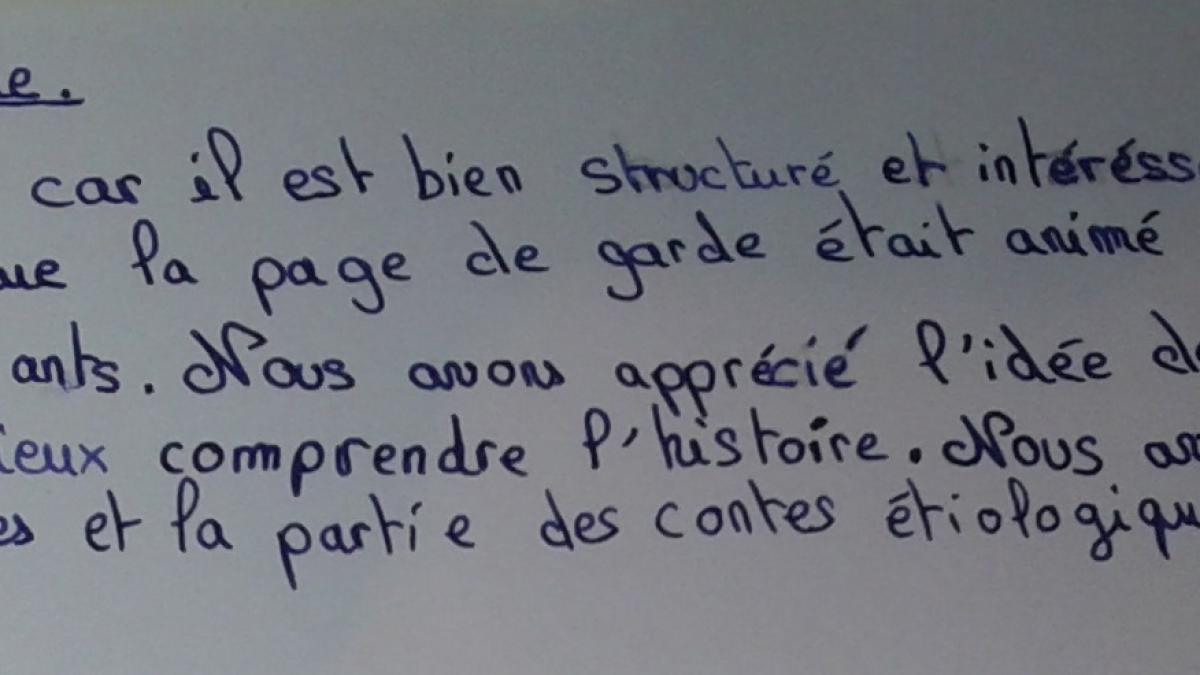 e.
car il est bien structuré et intéréss
ue la page de garde était animé
ants. Nous avons apprécié l'idée de
ieux comprendre l'histoire. Nous av
es et la partie des contes étiologiqu